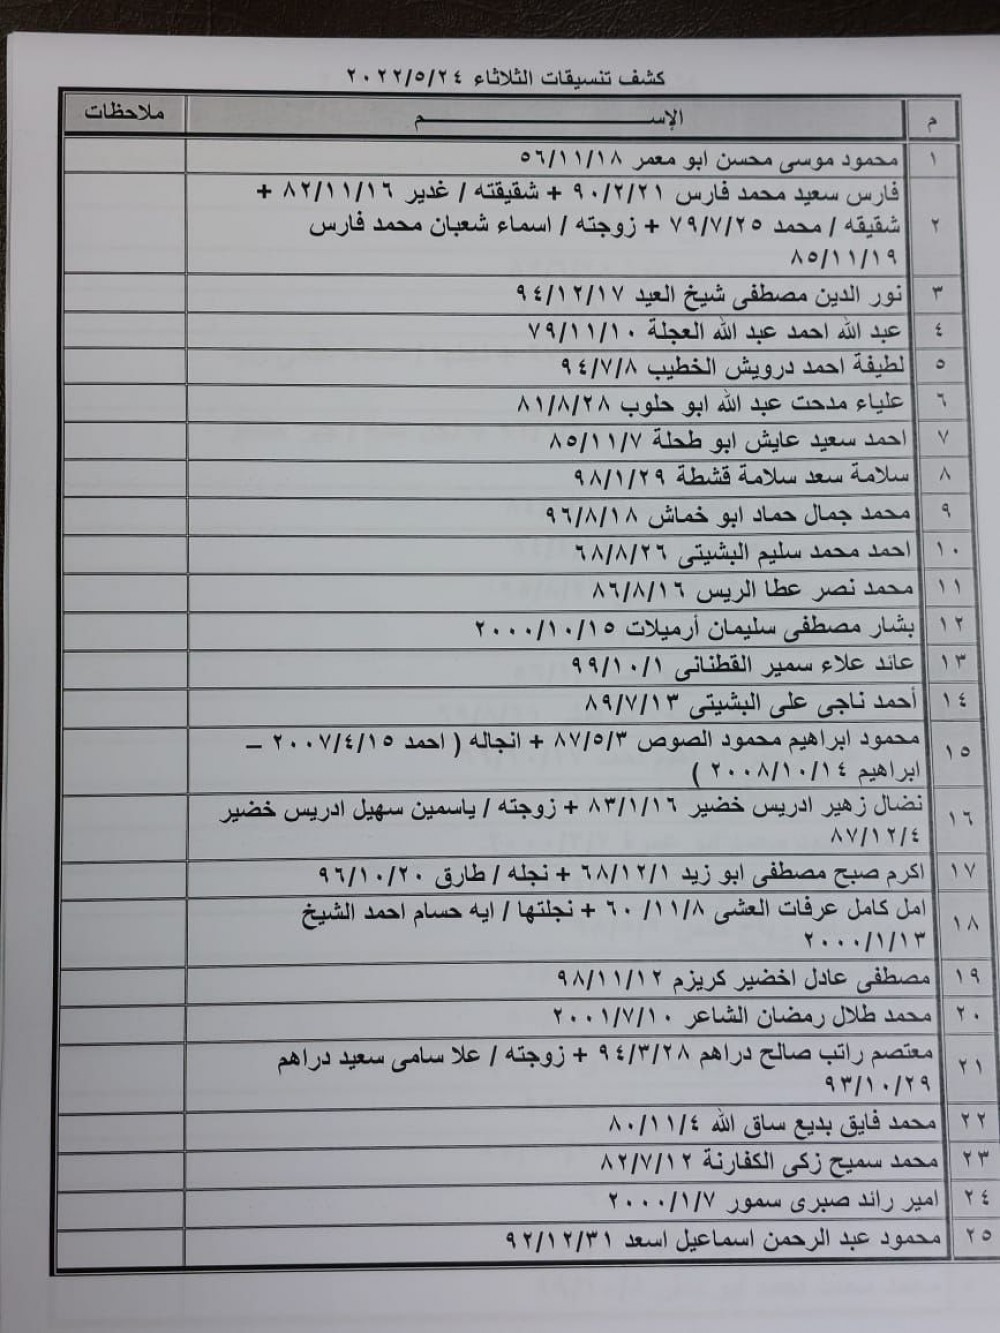 كشف تنسيقات الثلاثاء ٢٠٢٢/٥/٢٤
م الإســـــم ملاحظات
١ محمود موسى محسن ابو معمر ٥٦/١١/١٨
فارس سعيد محمد فارس ٩٠/٢/٢١ + شقيقته / غدير ٨٢/١١/١٦ +
٢ شقيقه / محمد ٧٩/٧/٢٥ + زوجته / اسماء شعبان محمد فارس
٨٥/١١/١٩
٣ نور الدين مصطفى شيخ العيد ٩٤/١٢/١٧
٤ عبد الله احمد عبد الله العجلة ٧٩/١١/١٠
٥ لطيفة احمد درويش الخطيب ٩٤/٧/٨
٦ علياء مدحت عبد الله ابو حلوب ٨١/٨/٢٨
٧ احمد سعيد عايش ابو طحلة ٨٥/١١/٧
٨ سلامة سعد سلامة قشطة ٩٨/١/٢٩
٩ محمد جمال حماد ابو خماش ٩٦/٨/١٨
١٠ احمد محمد سليم البشيتى ٦٨/٨/٢٦
١١ محمد نصر عطا الريس ٨٦/٨/١٦
١٢ بشار مصطفى سليمان أرميلات ٢٠٠٠/١٠/١٥
١٣ عائد علاء سمير القطنانى ٩٩/١٠/١
١٤ أحمد ناجى على البشيتى ٨٩/٧/١٣
١٥ محمود ابراهيم محمود الصوص ٨٧/٥/٣ + انجاله ( احمد ٢٠٠٧/٤/١٥ –
ابراهيم ٢٠٠٨/١٠/١٤ )
١٦ نضال زهير ادريس خضير ٨٣/١/١٦ + زوجته / ياسمين سهيل ادريس خضير
٨٧/١٢/٤
١٧ اكرم صبح مصطفى ابو زيد ٦٨/١٢/١ + نجله / طارق ٩٦/١٠/٢٠
١٨ امل كامل عرفات العشى ٦٠/١١/٨ + نجلتها / ايه حسام احمد الشيخ
٢٠٠٠/١/١٣
١٩ مصطفى عادل اخضير كريزم ٩٨/١١/١٢
٢٠ محمد طلال رمضان الشاعر ٢٠٠١/٧/١٠
٢١ معتصم راتب صالح دراهم ٩٤/٣/٢٨ + زوجته / علا سامى سعيد دراهم
٩٣/١٠/٢٩
٢٢ محمد فايق بديع ساق الله ٨٠/١١/٤
٢٣ محمد سميح زكى الكفارنة ٨٢/٧/١٢
٢٤ امير رائد صبرى سمور ٢٠٠٠/١/٧
٢٥ محمود عبد الرحمن اسماعيل اسعد ٩٢/١٢/٣١